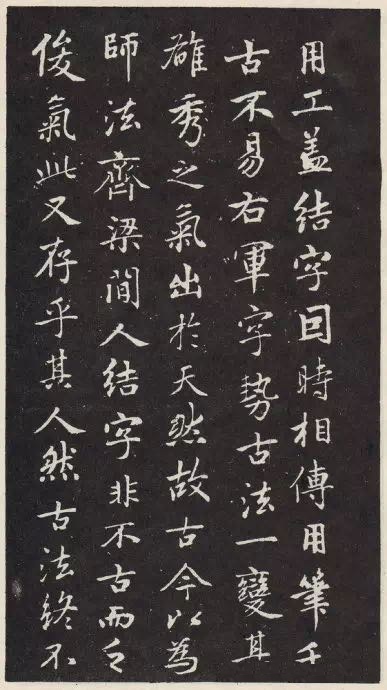 用工盖結字因時相傳用筆千
古不易右軍字勢古法一變其
雄秀之氣出於天然故古今以為
師法齊梁間人結字非不古而乏
俊氣此又存乎其人然古法終不